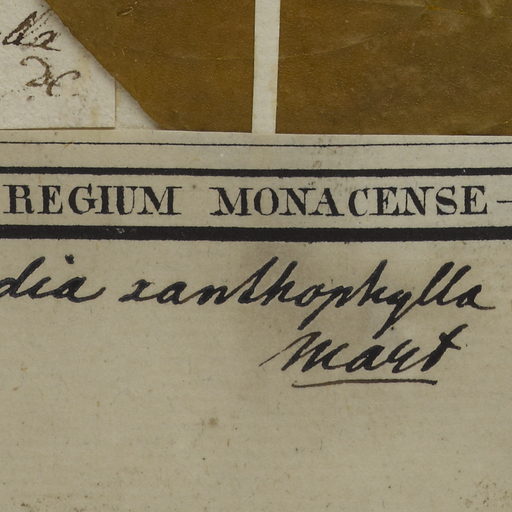 lla
DC.
REGIUM MONACENSE —
dia xanthophylla
Mart